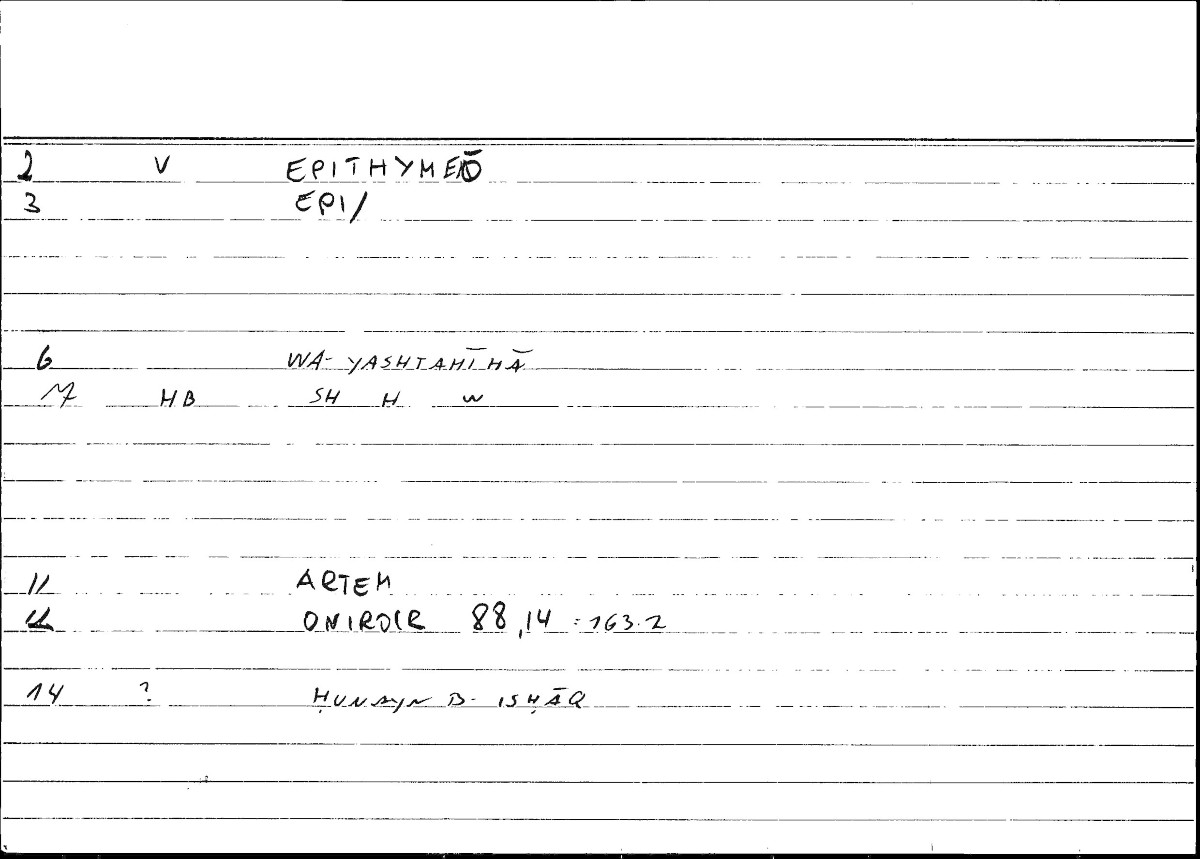 2 V EPITHYMEŌ
3 EPI/
6 WA-YASHTAHĪHĀ
HB SH H W
11 ARTEM
12 ONIROCR 88,14 = 163.2
14 ? ḤUNAYN B. ISḤĀQ